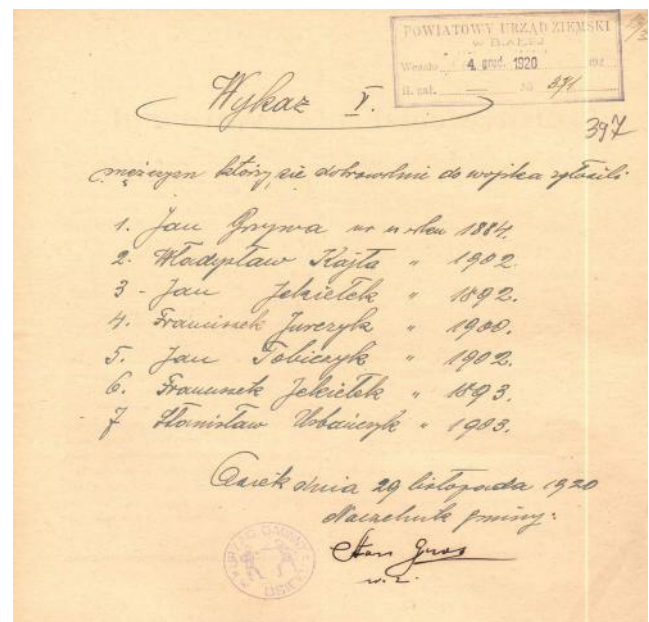 POWIATOWY URZĄD ZIEMSKI
W BIAŁEJ
Weszło 4. grud. 1920 192
L. zał. — Nr 371
Wykaz I.
397
mężczyzn którzy się dobrowolnie do wojska zgłosili
1. Jan Grzywa ur. w roku 1884.
2. Władysław Kajta " 1902.
3 - Jan Jekiełek " 1892.
4. Franciszek Jurczyk " 1900.
5. Jan Tobiczyk " 1902.
6. Franciszek Jekiełek " 1893.
7 Stanisław Urbańczyk " 1903.
Osiek dnia 29 listopada 1920
Naczelnik gminy:
URZĄD GMINNY OSIEK